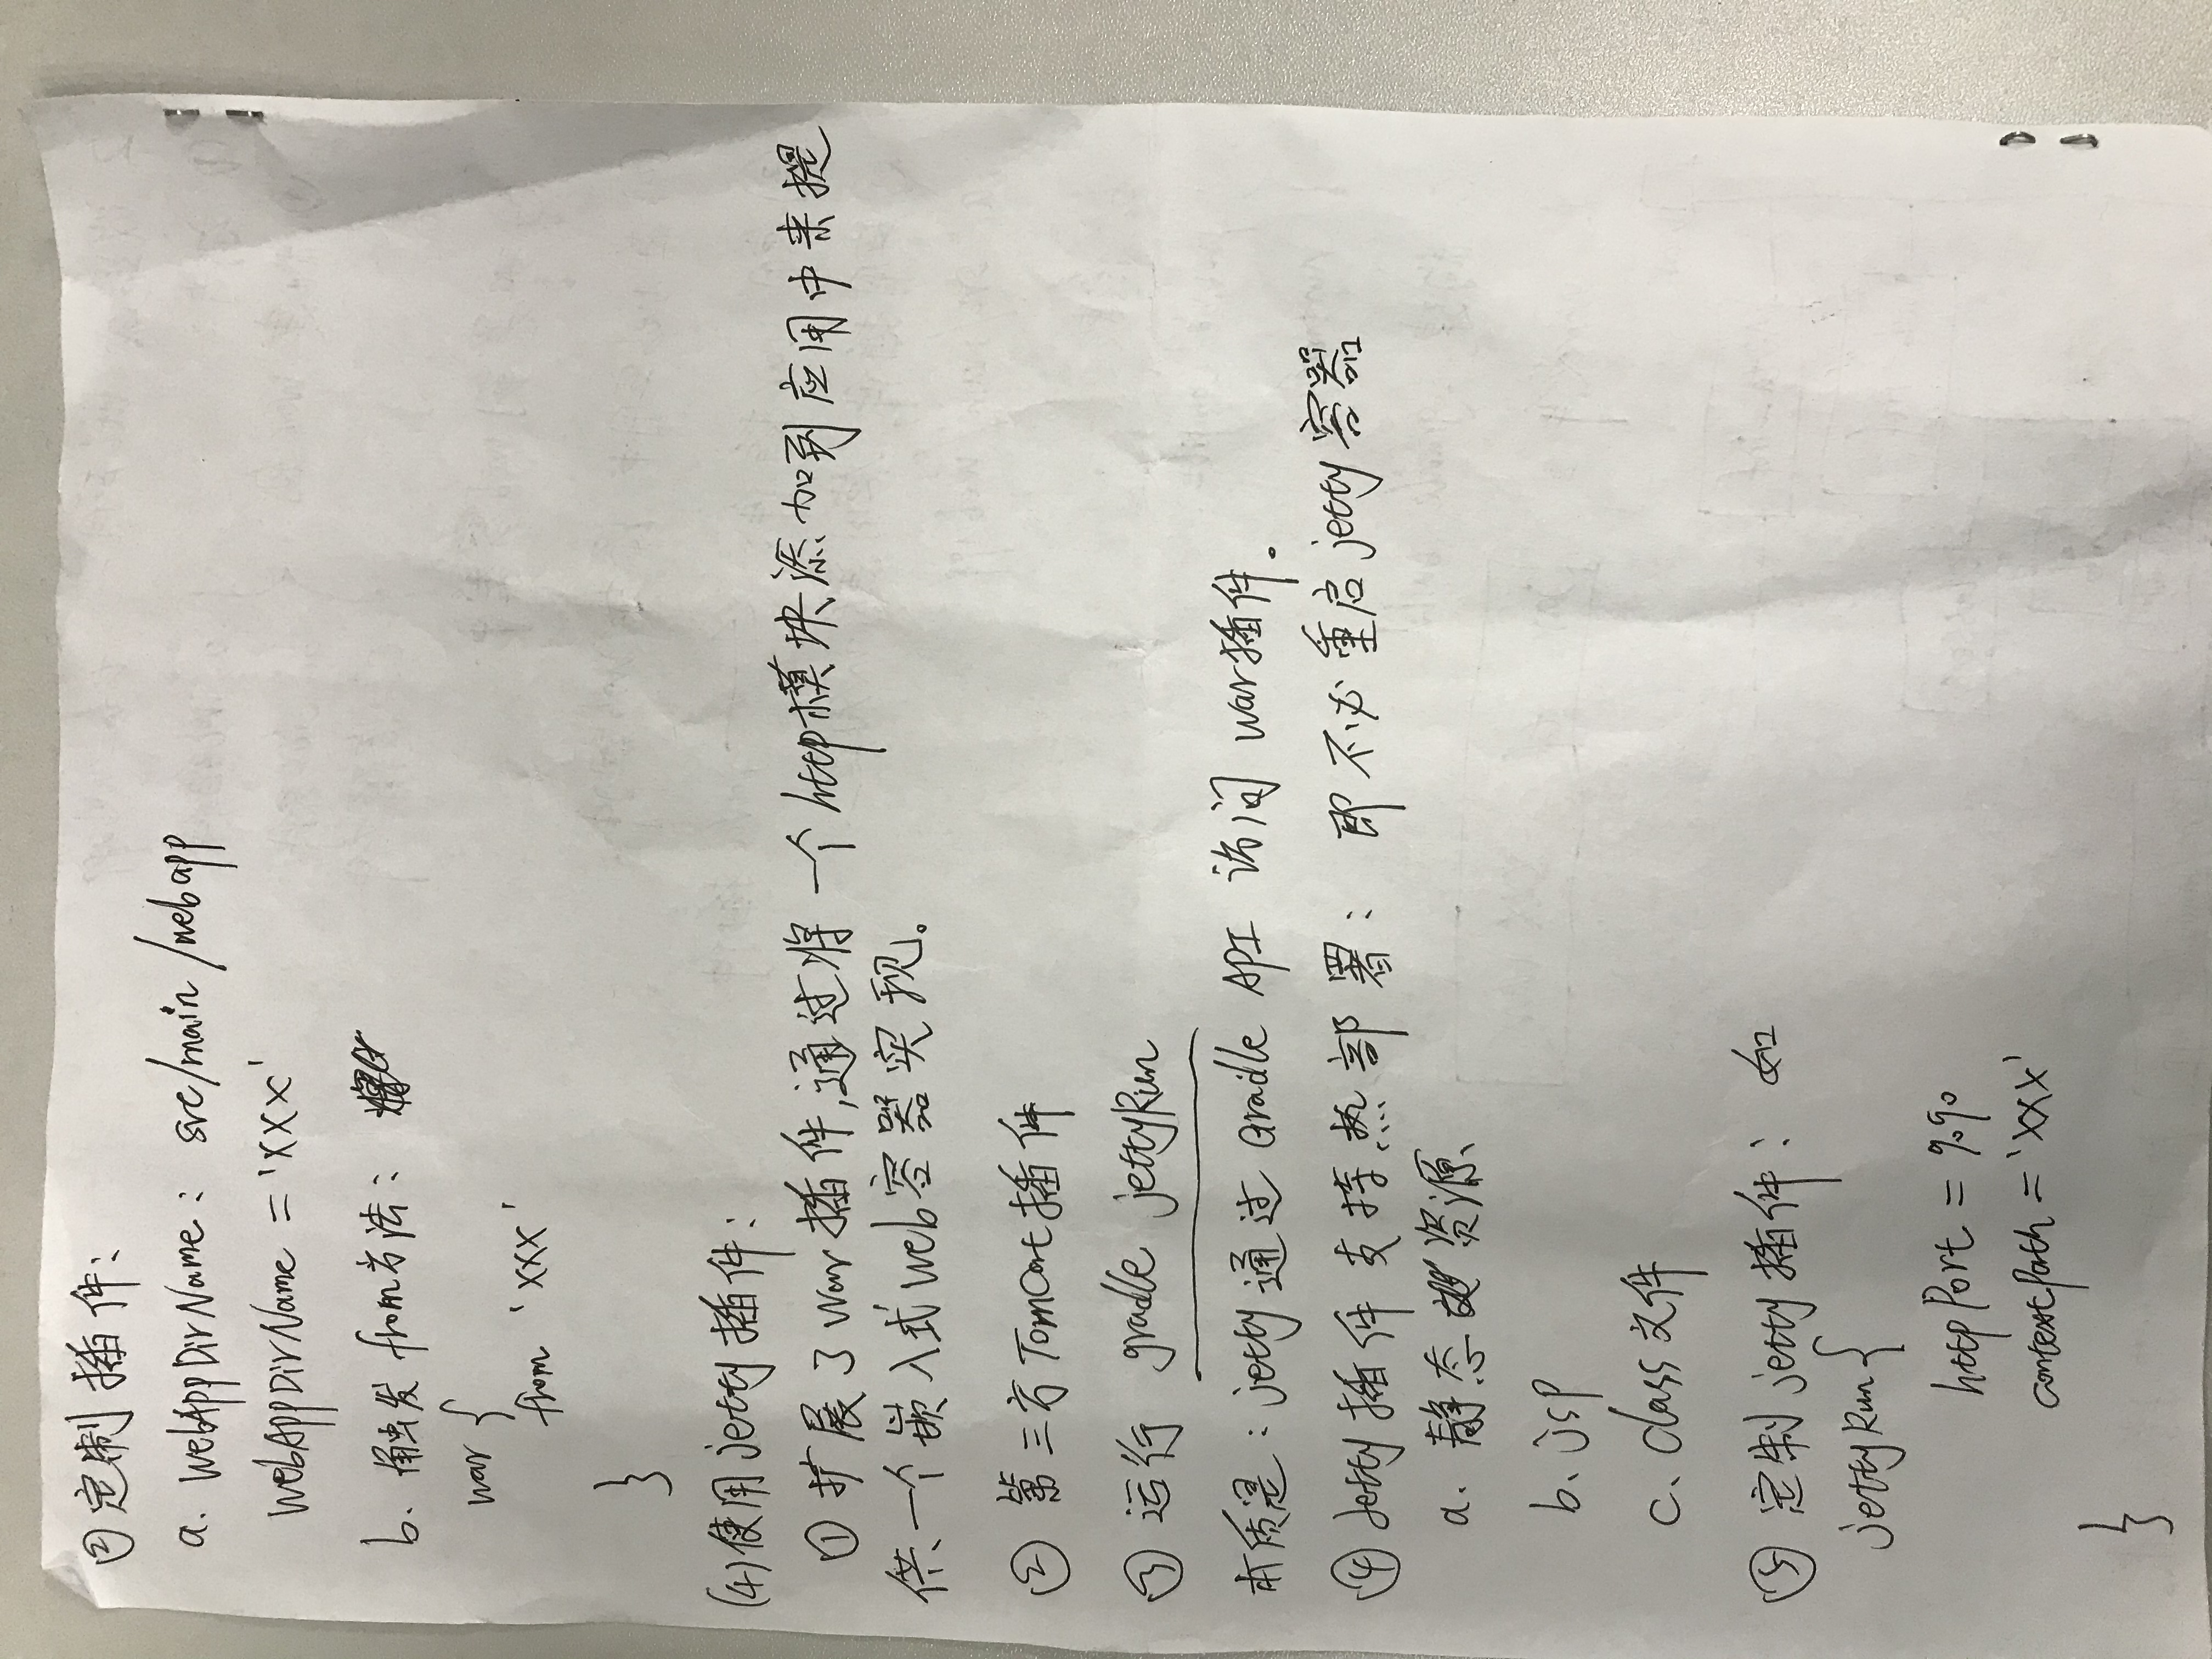 ②定制插件:
a. webAppDirName: src/main/webapp
webAppDirName = 'XXX'
b. 触发from方法:
war {
from 'XXX'
}
(4)使用jetty插件:
①扩展了war插件,通过将一个http模块添加到应用中来提
供一个嵌入式web容器实现。
②第三方TomCat插件
③运行 gradle jettyRun
本质是:jetty通过Gradle API 访问 war插件。
④Jetty插件支持热部署: 即不必重启jetty容器
a. 静态资源
b、jsp
c、class文件
⑤定制jetty插件: 如
jettyRun{
httpPort = 9090
contextPath = 'XXX'
}